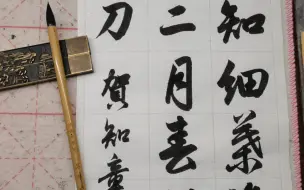 知细叶
二月春
刀 贺知章